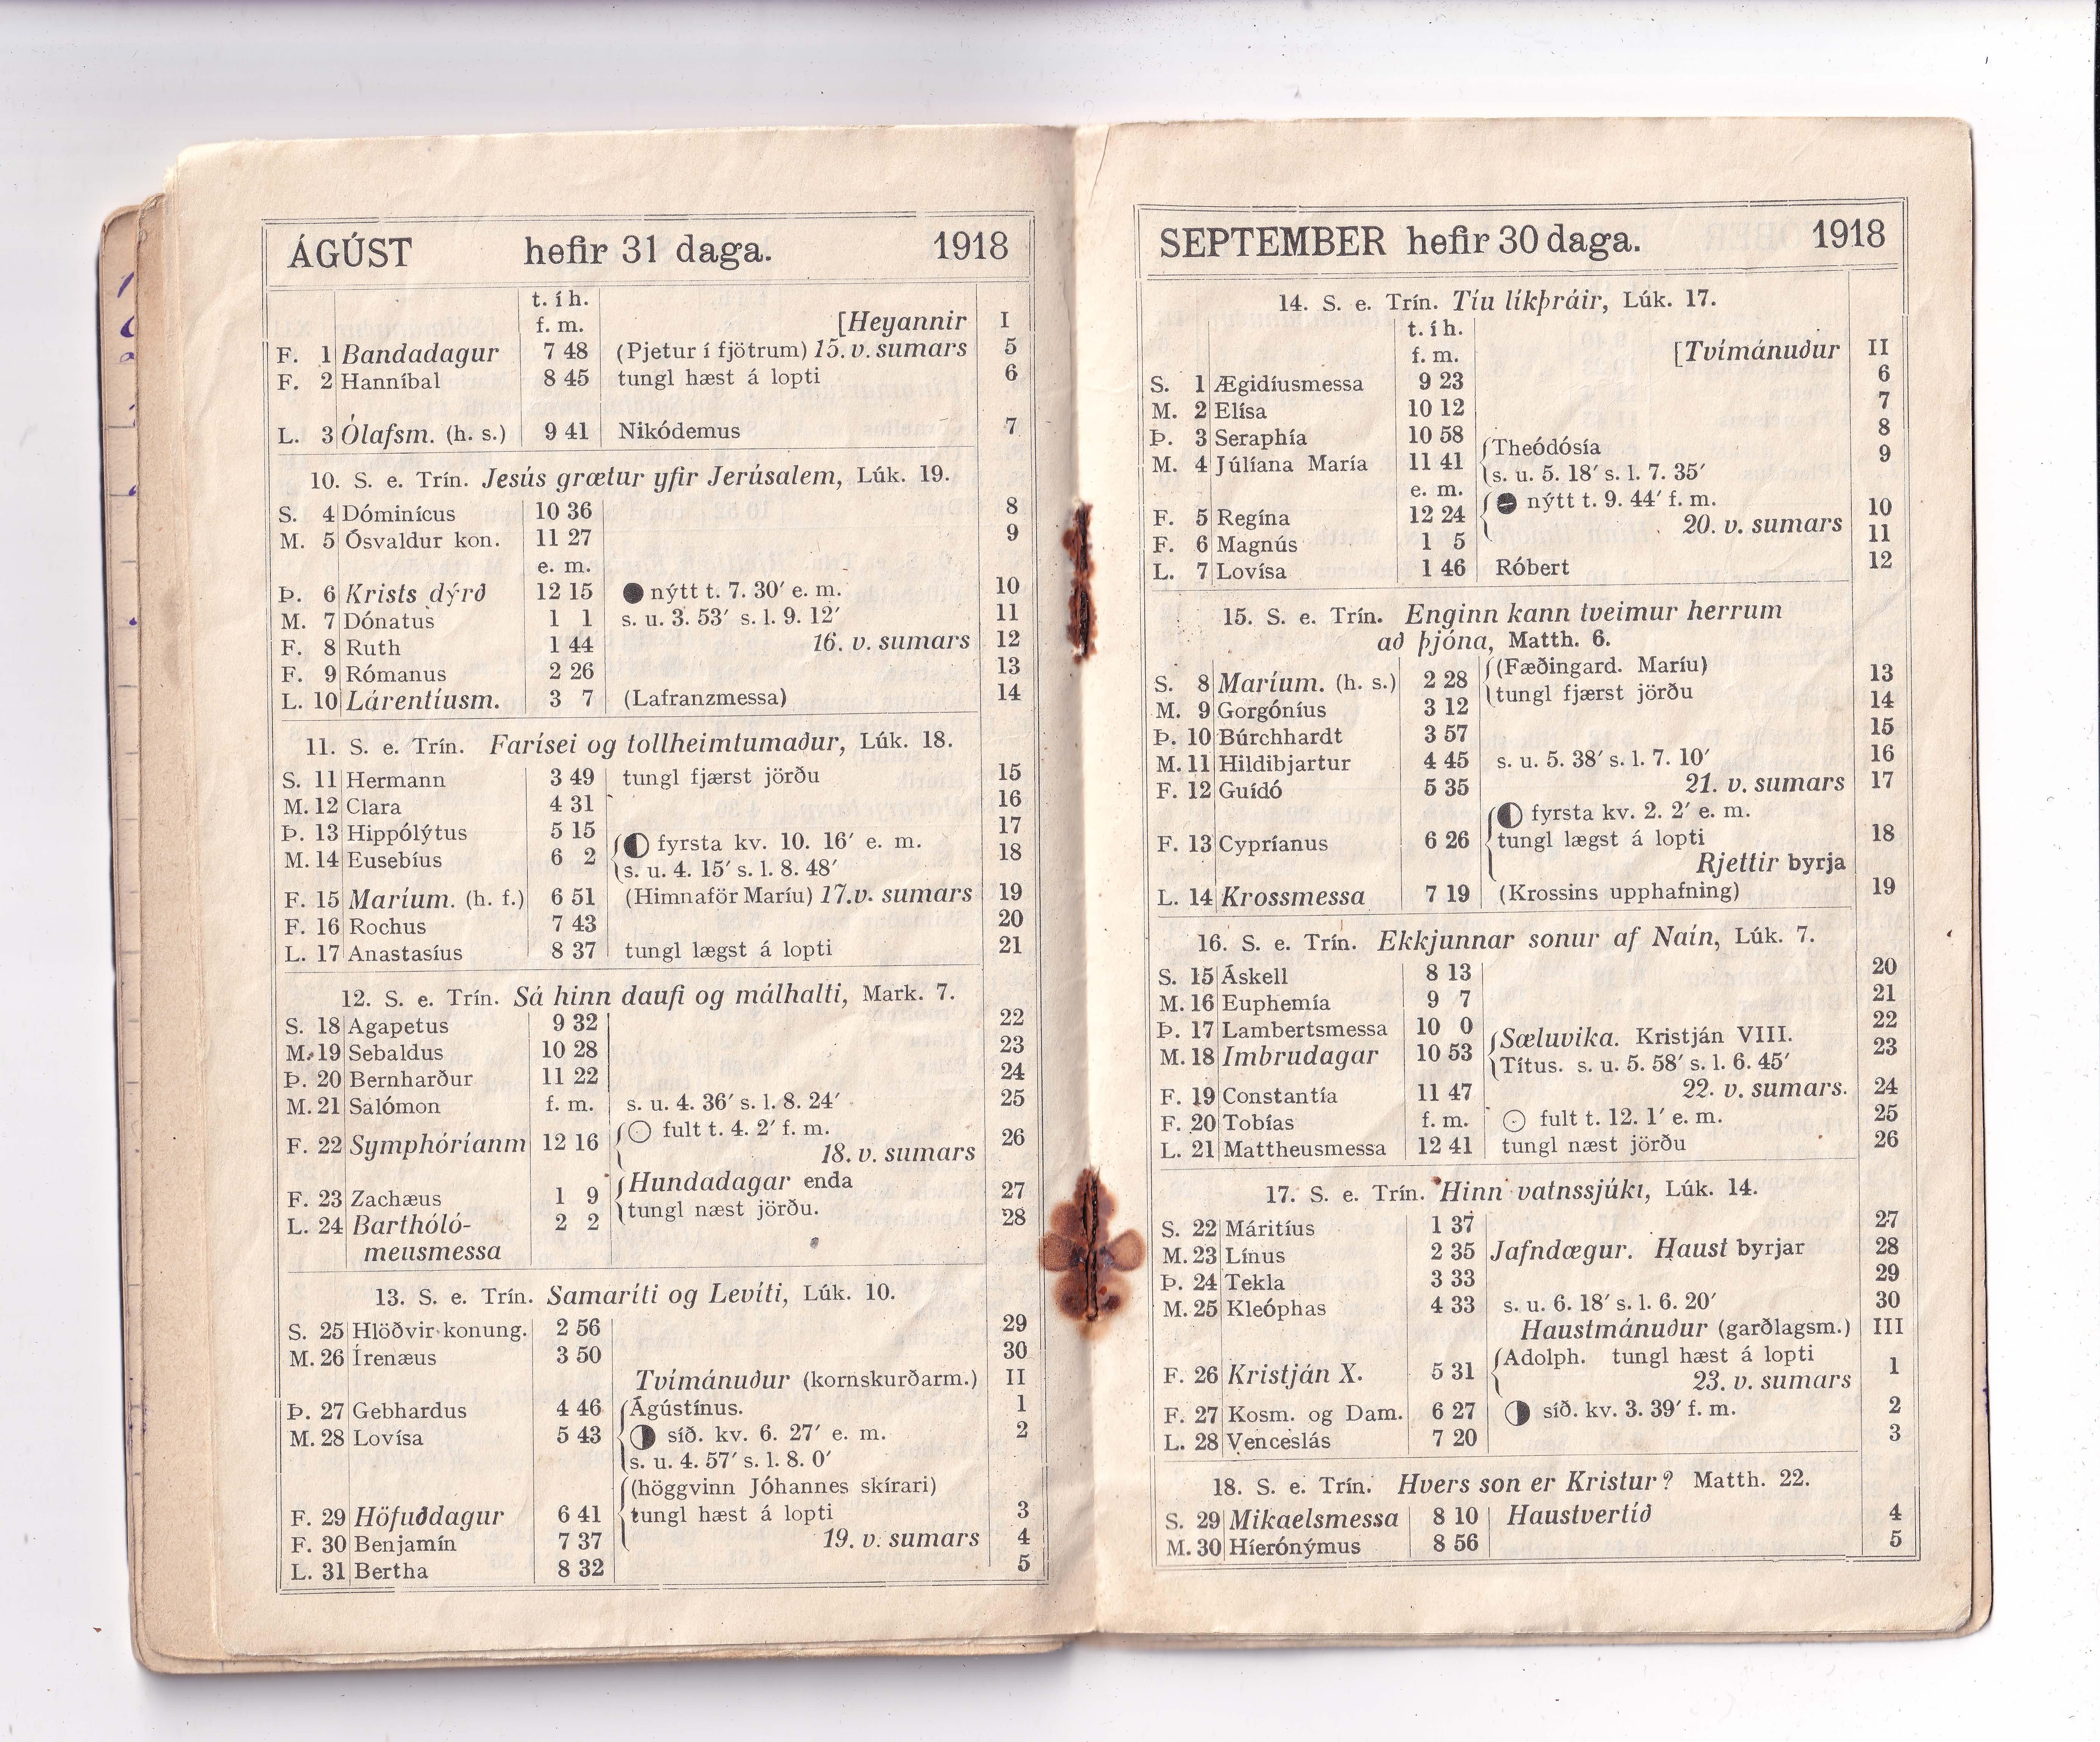 ÁGÚST hefir 31 daga. 1918
t. í h.
f. m. [Heyannir I
F. 1 Bandadagur 7 48 (Pjetur í fjötrum) 15. v. sumars 5
F. 2 Hanníbal 8 45 tungl hæst á lopti 6
L. 3 Ólafsm. (h. s.) 9 41 Nikódemus 7
10. S. e. Trín. Jesús grætur yfir Jerúsalem, Lúk. 19.
S. 4 Dóminícus 10 36 8
M. 5 Ósvaldur kon. 11 27 9
e. m.
Þ. 6 Krists dýrð 12 15 nýtt t. 7. 30′ e. m. 10
M. 7 Dónatus 1 1 s. u. 3. 53′ s. l. 9. 12′ 11
F. 8 Ruth 1 44 16. v. sumars 12
F. 9 Rómanus 2 26 13
L. 10 Lárentíusm. 3 7 (Lafranzmessa) 14
11. S. e. Trín. Farísei og tollheimtumaður, Lúk. 18.
S. 11 Hermann 3 49 tungl fjærst jörðu 15
M. 12 Clara 4 31 16
Þ. 13 Hippólýtus 5 15 17
M. 14 Eusebíus 6 2 fyrsta kv. 10. 16′ e. m. 18
s. u. 4. 15′ s. l. 8. 48′
F. 15 Maríum. (h. f.) 6 51 (Himnaför Maríu) 17. v. sumars 19
F. 16 Rochus 7 43 20
L. 17 Anastasíus 8 37 tungl lægst á lopti 21
12. S. e. Trín. Sá hinn daufi og málhalti, Mark. 7.
S. 18 Agapetus 9 32 22
M. 19 Sebaldus 10 28 23
Þ. 20 Bernharður 11 22 24
M. 21 Salómon f. m. s. u. 4. 36′ s. l. 8. 24′ 25
F. 22 Symphóríanm 12 16 fult t. 4. 2′ f. m. 26
18. v. sumars
F. 23 Zachæus 1 9 Hundadagar enda 27
tungl næst jörðu.
L. 24 Barthóló- 2 2 28
meusmessa
13. S. e. Trín. Samaríti og Levíti, Lúk. 10.
S. 25 Hlöðvir konung. 2 56 29
M. 26 Írenæus 3 50 30
Tvímánuður (kornskurðarm.) II
Þ. 27 Gebhardus 4 46 Ágústínus. 1
M. 28 Lovísa 5 43 síð. kv. 6. 27′ e. m. 2
s. u. 4. 57′ s. l. 8. 0′
(höggvinn Jóhannes skírari)
F. 29 Höfuðdagur 6 41 tungl hæst á lopti 3
F. 30 Benjamín 7 37 19. v. sumars 4
L. 31 Bertha 8 32 5
SEPTEMBER hefir 30 daga. 1918
14. S. e. Trín. Tíu líkþráir, Lúk. 17.
t. í h.
f. m. [Tvímánuður II
S. 1 Ægidíusmessa 9 23 6
M. 2 Elísa 10 12 7
Þ. 3 Seraphía 10 58 8
M. 4 Júlíana María 11 41 Theódósía 9
s. u. 5. 18′ s. l. 7. 35′
e. m. nýtt t. 9. 44′ f. m.
F. 5 Regína 12 24 20. v. sumars 10
F. 6 Magnús 1 5 11
L. 7 Lovísa 1 46 Róbert 12
15. S. e. Trín. Enginn kann tveimur herrum
að þjóna, Matth. 6.
S. 8 Maríum. (h. s.) 2 28 (Fæðingard. Maríu) 13
tungl fjærst jörðu
M. 9 Gorgóníus 3 12 14
Þ. 10 Búrchhardt 3 57 15
M. 11 Hildibjartur 4 45 s. u. 5. 38′ s. l. 7. 10′ 16
F. 12 Guídó 5 35 21. v. sumars 17
fyrsta kv. 2. 2′ e. m.
F. 13 Cypríanus 6 26 tungl lægst á lopti 18
Rjettir byrja
L. 14 Krossmessa 7 19 (Krossins upphafning) 19
16. S. e. Trín. Ekkjunnar sonur af Naín, Lúk. 7.
S. 15 Áskell 8 13 20
M. 16 Euphemía 9 7 21
Þ. 17 Lambertsmessa 10 0 22
M. 18 Imbrudagar 10 53 Sæluvika. Kristján VIII. 23
Títus. s. u. 5. 58′ s. l. 6. 45′
F. 19 Constantía 11 47 22. v. sumars. 24
F. 20 Tobías f. m. fult t. 12. 1′ e. m. 25
L. 21 Mattheusmessa 12 41 tungl næst jörðu 26
17. S. e. Trín. Hinn vatnssjúki, Lúk. 14.
S. 22 Máritíus 1 37 27
M. 23 Línus 2 35 Jafndægur. Haust byrjar 28
Þ. 24 Tekla 3 33 29
M. 25 Kleóphas 4 33 s. u. 6. 18′ s. l. 6. 20′ 30
Haustmánuður (garðlagsm.) III
F. 26 Kristján X. 5 31 Adolph. tungl hæst á lopti 1
23. v. sumars
F. 27 Kosm. og Dam. 6 27 síð. kv. 3. 39′ f. m. 2
L. 28 Venceslás 7 20 3
18. S. e. Trín. Hvers son er Kristur? Matth. 22.
S. 29 Mikaelsmessa 8 10 Haustvertíð 4
M. 30 Híerónýmus 8 56 5